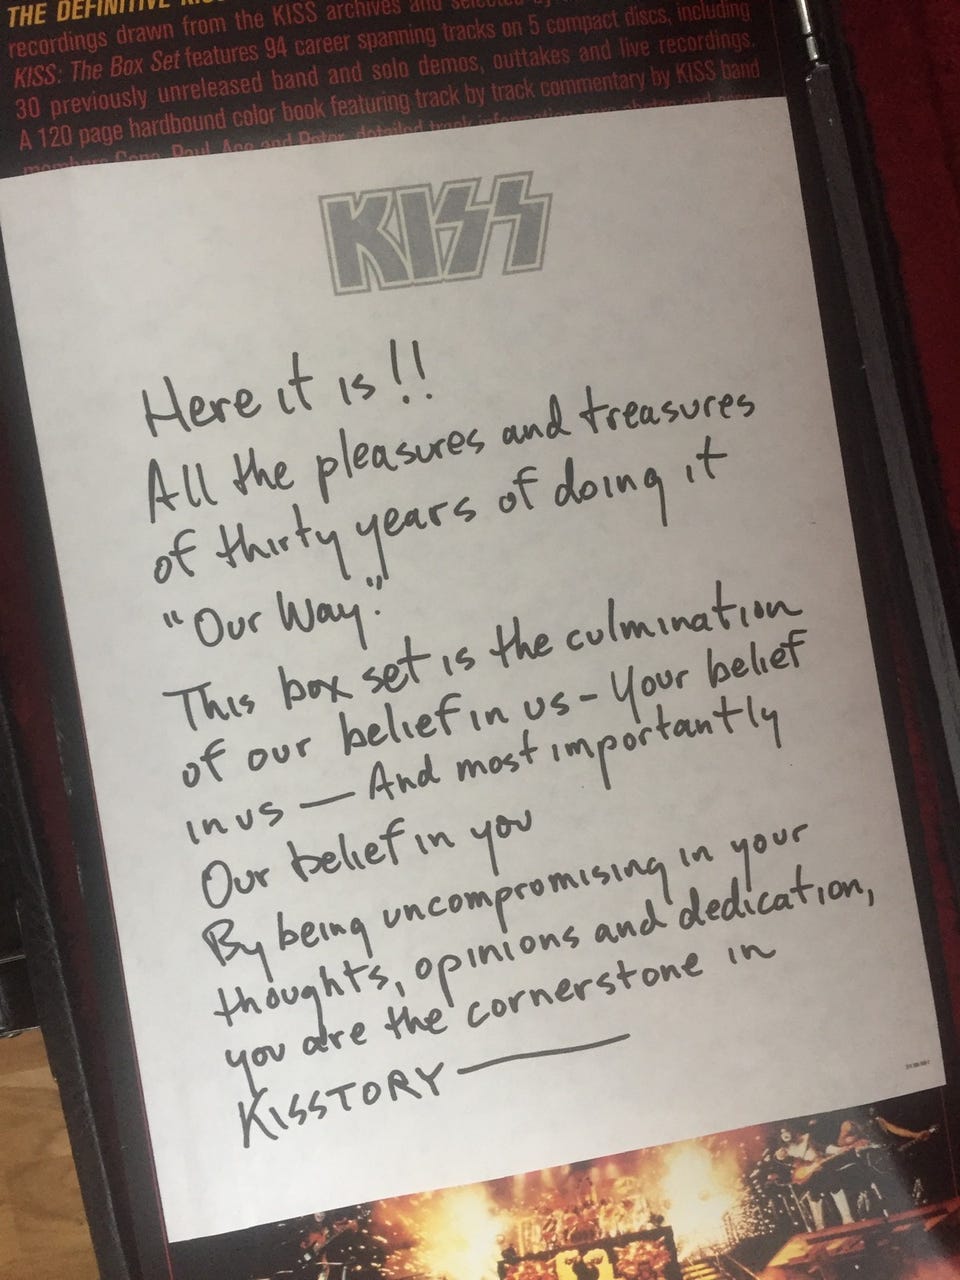 THE DEFINITIVE
recordings drawn from the KISS archives and
KISS: The Box Set features 94 career spanning tracks on 5 compact discs, including
30 previously unreleased band and solo demos, outtakes and live recordings.
A 120 page hardbound color book featuring track by track commentary by KISS band
members Gene, Paul, Ace and Peter, detailed track
KISS
Here it is!!
All the pleasures and treasures
of thirty years of doing it
"Our Way."
This box set is the culmination
of our belief in us - Your belief
in us — And most importantly
Our belief in you
By being uncompromising in your
thoughts, opinions and dedication,
you are the cornerstone in
KISSTORY —